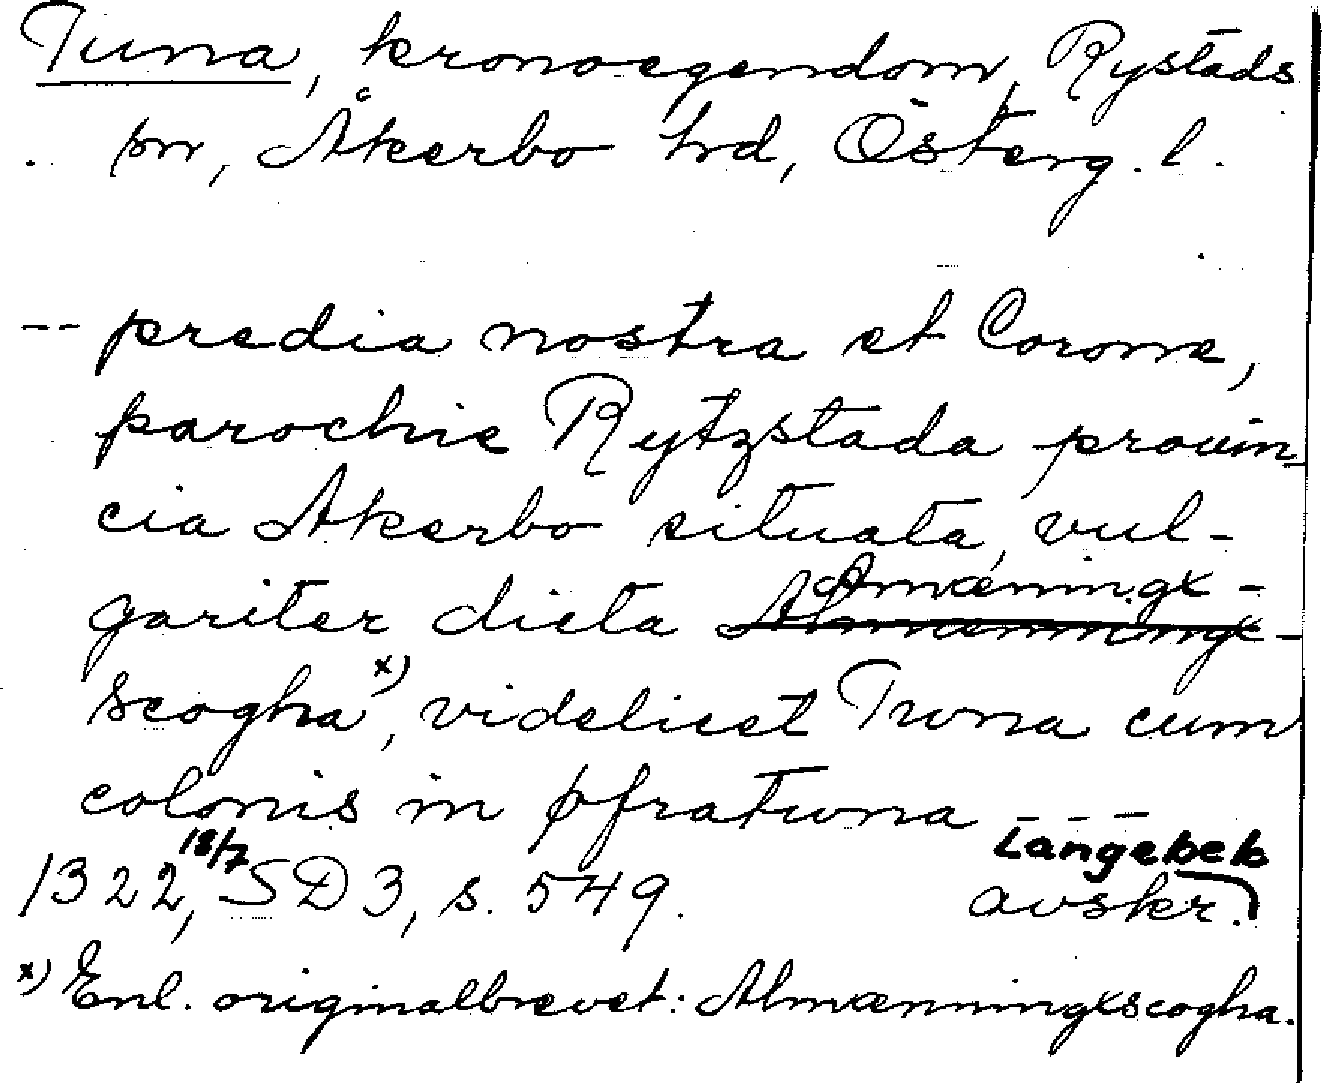 Tuna, kronoegendom, Rystads
sn, Åkerbo hrd, Österg. l.
-- predia nostra et Corone,
parochie Rytzstada prouin-
cia Akerbo situata, vul-
gariter dicta Almænningx-
scogha x), videlicet Twna cum
colonis in Ofratwna ---
1322, 18/7 SD 3, s. 549. Langebek
avskr.
x) Enl. originalbrevet: Almænningxscogha.